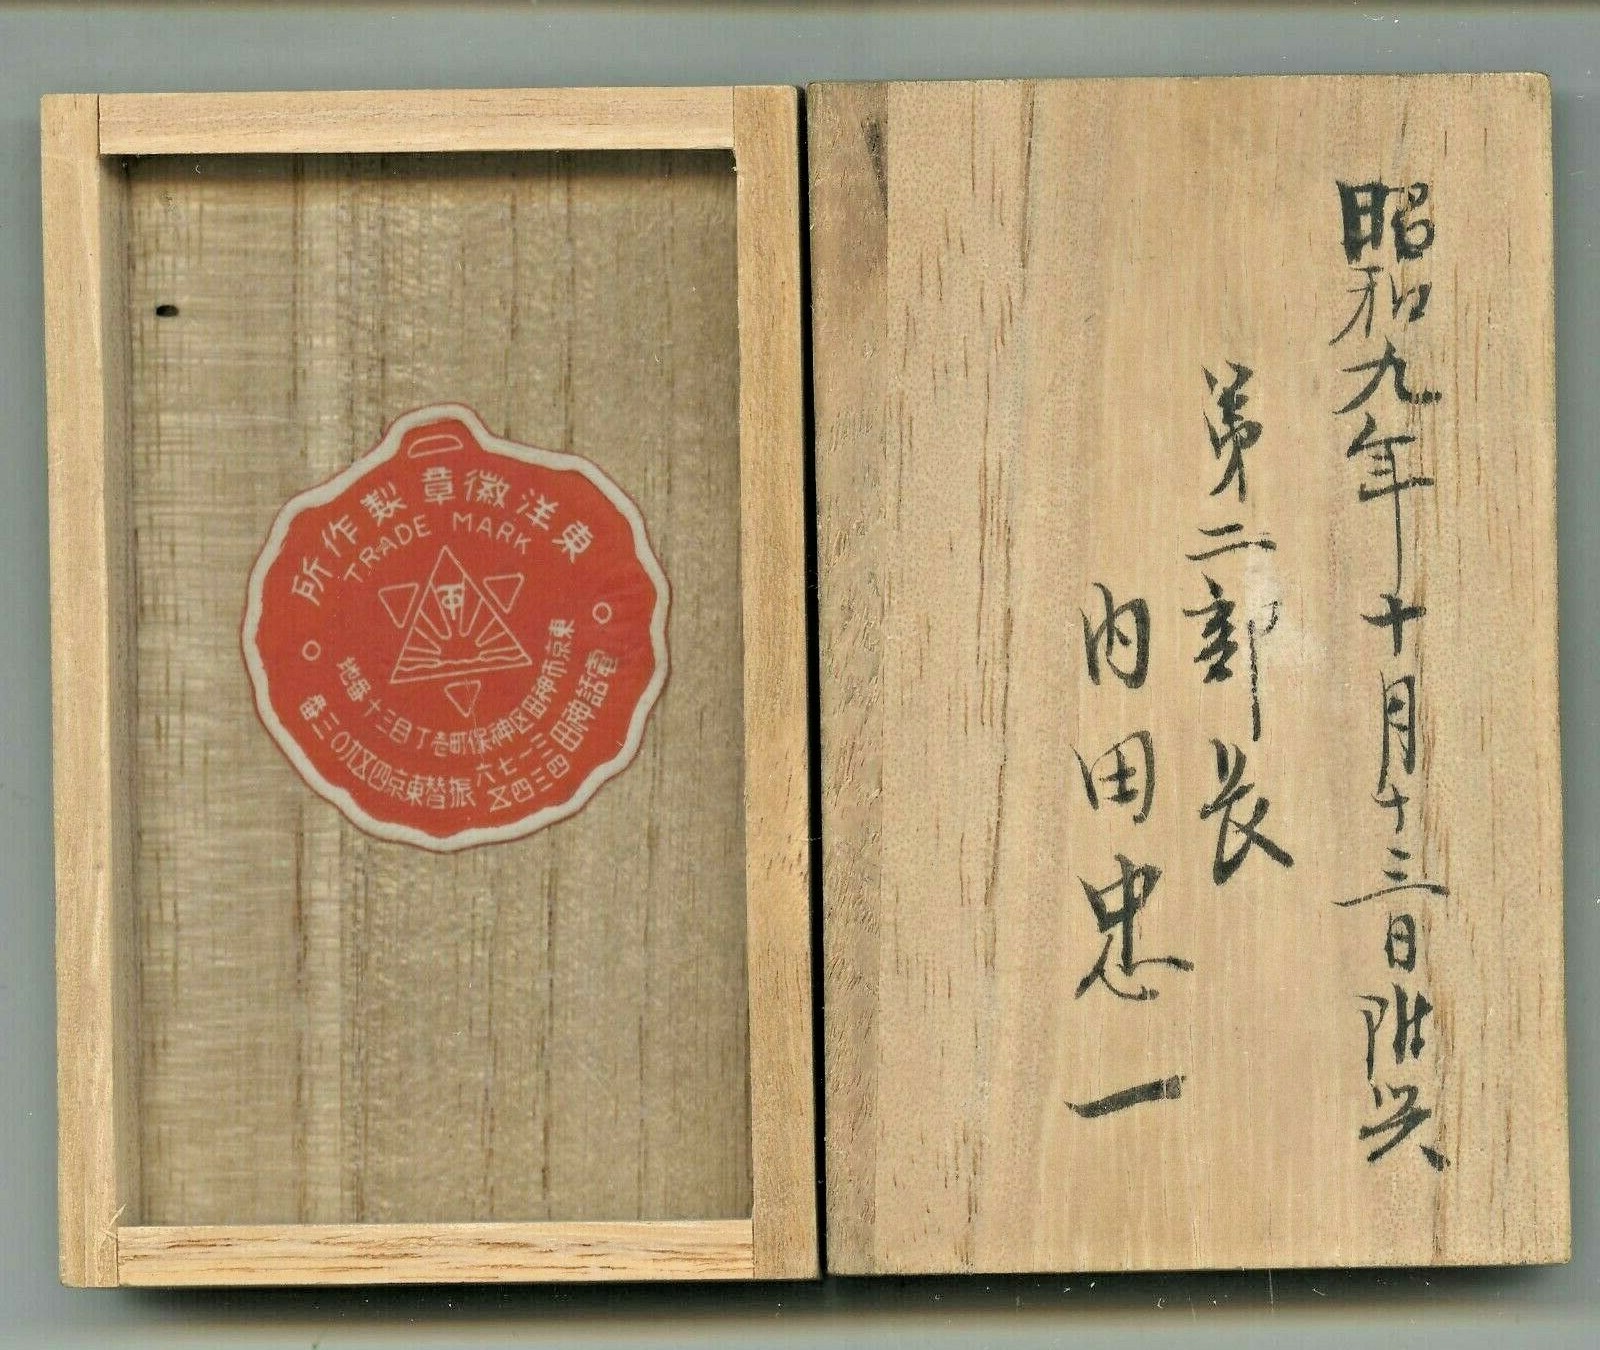 東洋徽章製作所
TRADE MARK
東京市神田区神保町壱丁目三十番地
電話神田
三一七六
四三四五
振替東京四五九〇二番
昭和九年十月十三日附與
第二部長
内田忠一